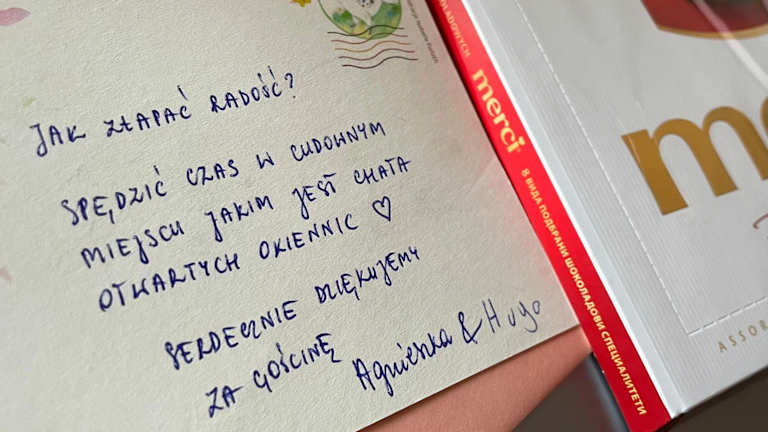 JAK ZŁAPAĆ RADOŚĆ?
SPĘDZIĆ CZAS W CUDOWNYM
MIEJSCU JAKIM JEST CHATA
OTWARTYCH OKIENNIC ♡
SERDECZNIE DZIĘKUJEMY
ZA GOŚCINĘ
Agnieszka & Hugo
merci
8 ВИДА ПОДБРАНИ ШОКОЛАДОВИ СПЕЦИАЛИТЕТИ
me
ASSOR